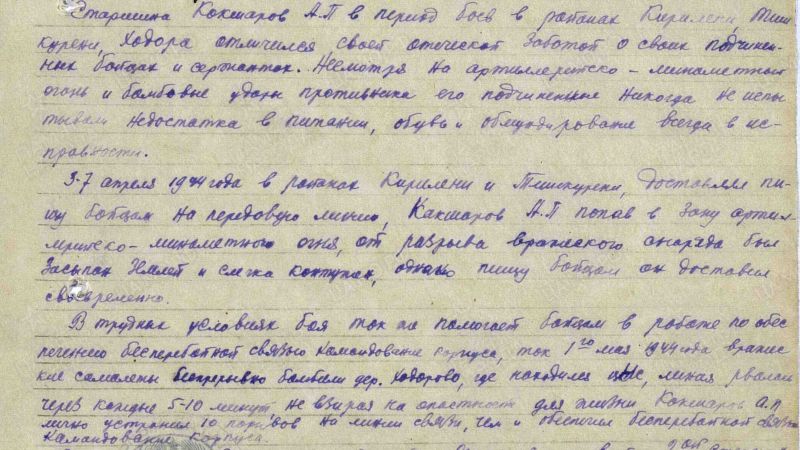 Старшина Кокшаров А.П в период боев в районах Кирилени, Тиш
курени, Ходора отличился своей отеческой заботой о своих подчинен-
ных бойцах и сержантах. Несмотря на артиллерийско-минаметный
огонь и бамбовые удары противника его подчиненные никогда не испы
тывали недостатка в питании, обувь и обмундирование всегда в ис-
правности.
3-7 апреля 1944 года в районах Кирилени и Тишкурени, доставляя пи-
щу бойцам на передовую линию, Какшаров А.П попав в зону артил-
лерийско-минаметного огня, от разрыва вражеского снаряда был
засыпан землей и слегка контужен, однако пищу бойцам он доставил
своевременно.
В трудных условиях боя так же помогает бойцам в работе по обес
печению бесперебойной связью командование корпуса, так 1го мая 1944 года вражес-
кие самалеты беспрерывно бамбили дер. Ходорово, где находился, линия рвалась
через каждые 5-10 минут, не взирая на опастность для жизни Кокшаров А.П
лично устранил 10 порывов на линии связи, чем и обеспечил бесперебойной связью
командование корпуса.